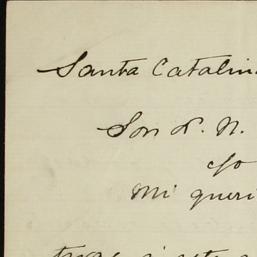 Santa Catalin
Son D. N.
c/o
Mi queri